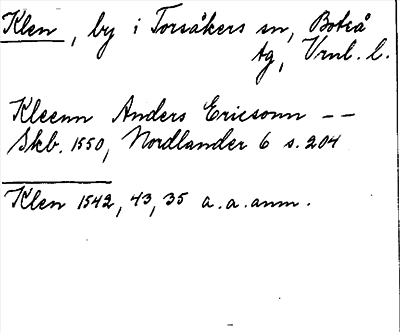 Klen, by i Torsåkers sn, Boteå
tg, Vrnl. l.
Kleenn Anders Ericsonn --
Skb. 1550, Nordlander 6 s. 204
Klen 1542, 43, 35 a. a. anm.